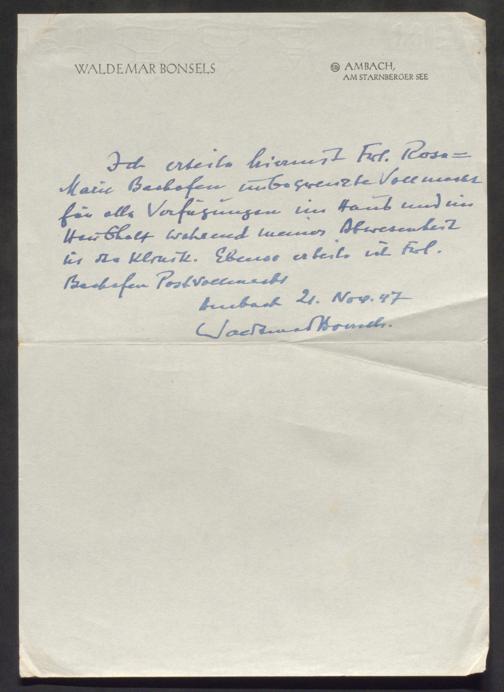 WALDEMAR BONSELS
AMBACH,
AM STARNBERGER SEE
Ich erteile hiermit Frl. Rosa=
Marie Bachofen unbegrenzte Vollmacht
für alle Verfügungen im Haus und im
Haushalt während meiner Abwesenheit
in der Klinik. Ebenso erteile ich Frl.
Bachofen Postvollmacht
Ambach 21. Nov. 47
Waldemar Bonsels.